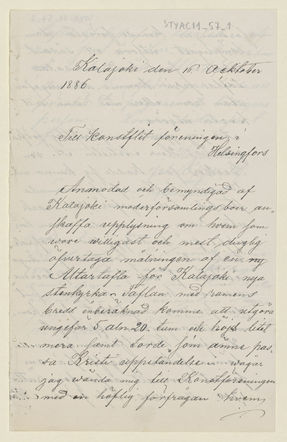 STYAC11_57_1
Kalajoki den 15 October
1886.
Till Konstflit föreningen, i
Helsingfors
Anmodad och bemyndigad af
Kalajoki moderförsamlings boer an-
skaffa upplysning om hvem som
wore willigast och mest duglig
öfvertaga målningen af en ny
Altartafla för Kalajoki nya
stenkyrka. Taflan med ramens
bredd inberäknad komme att utgöra
ungefär 5 aln 20. tum och höjd litet
mera samt borde som ämne pas-
sa Kristi uppståndelse. wågar
jag wända mig till Konstföreningen
med en höflig förfrågan hvem,